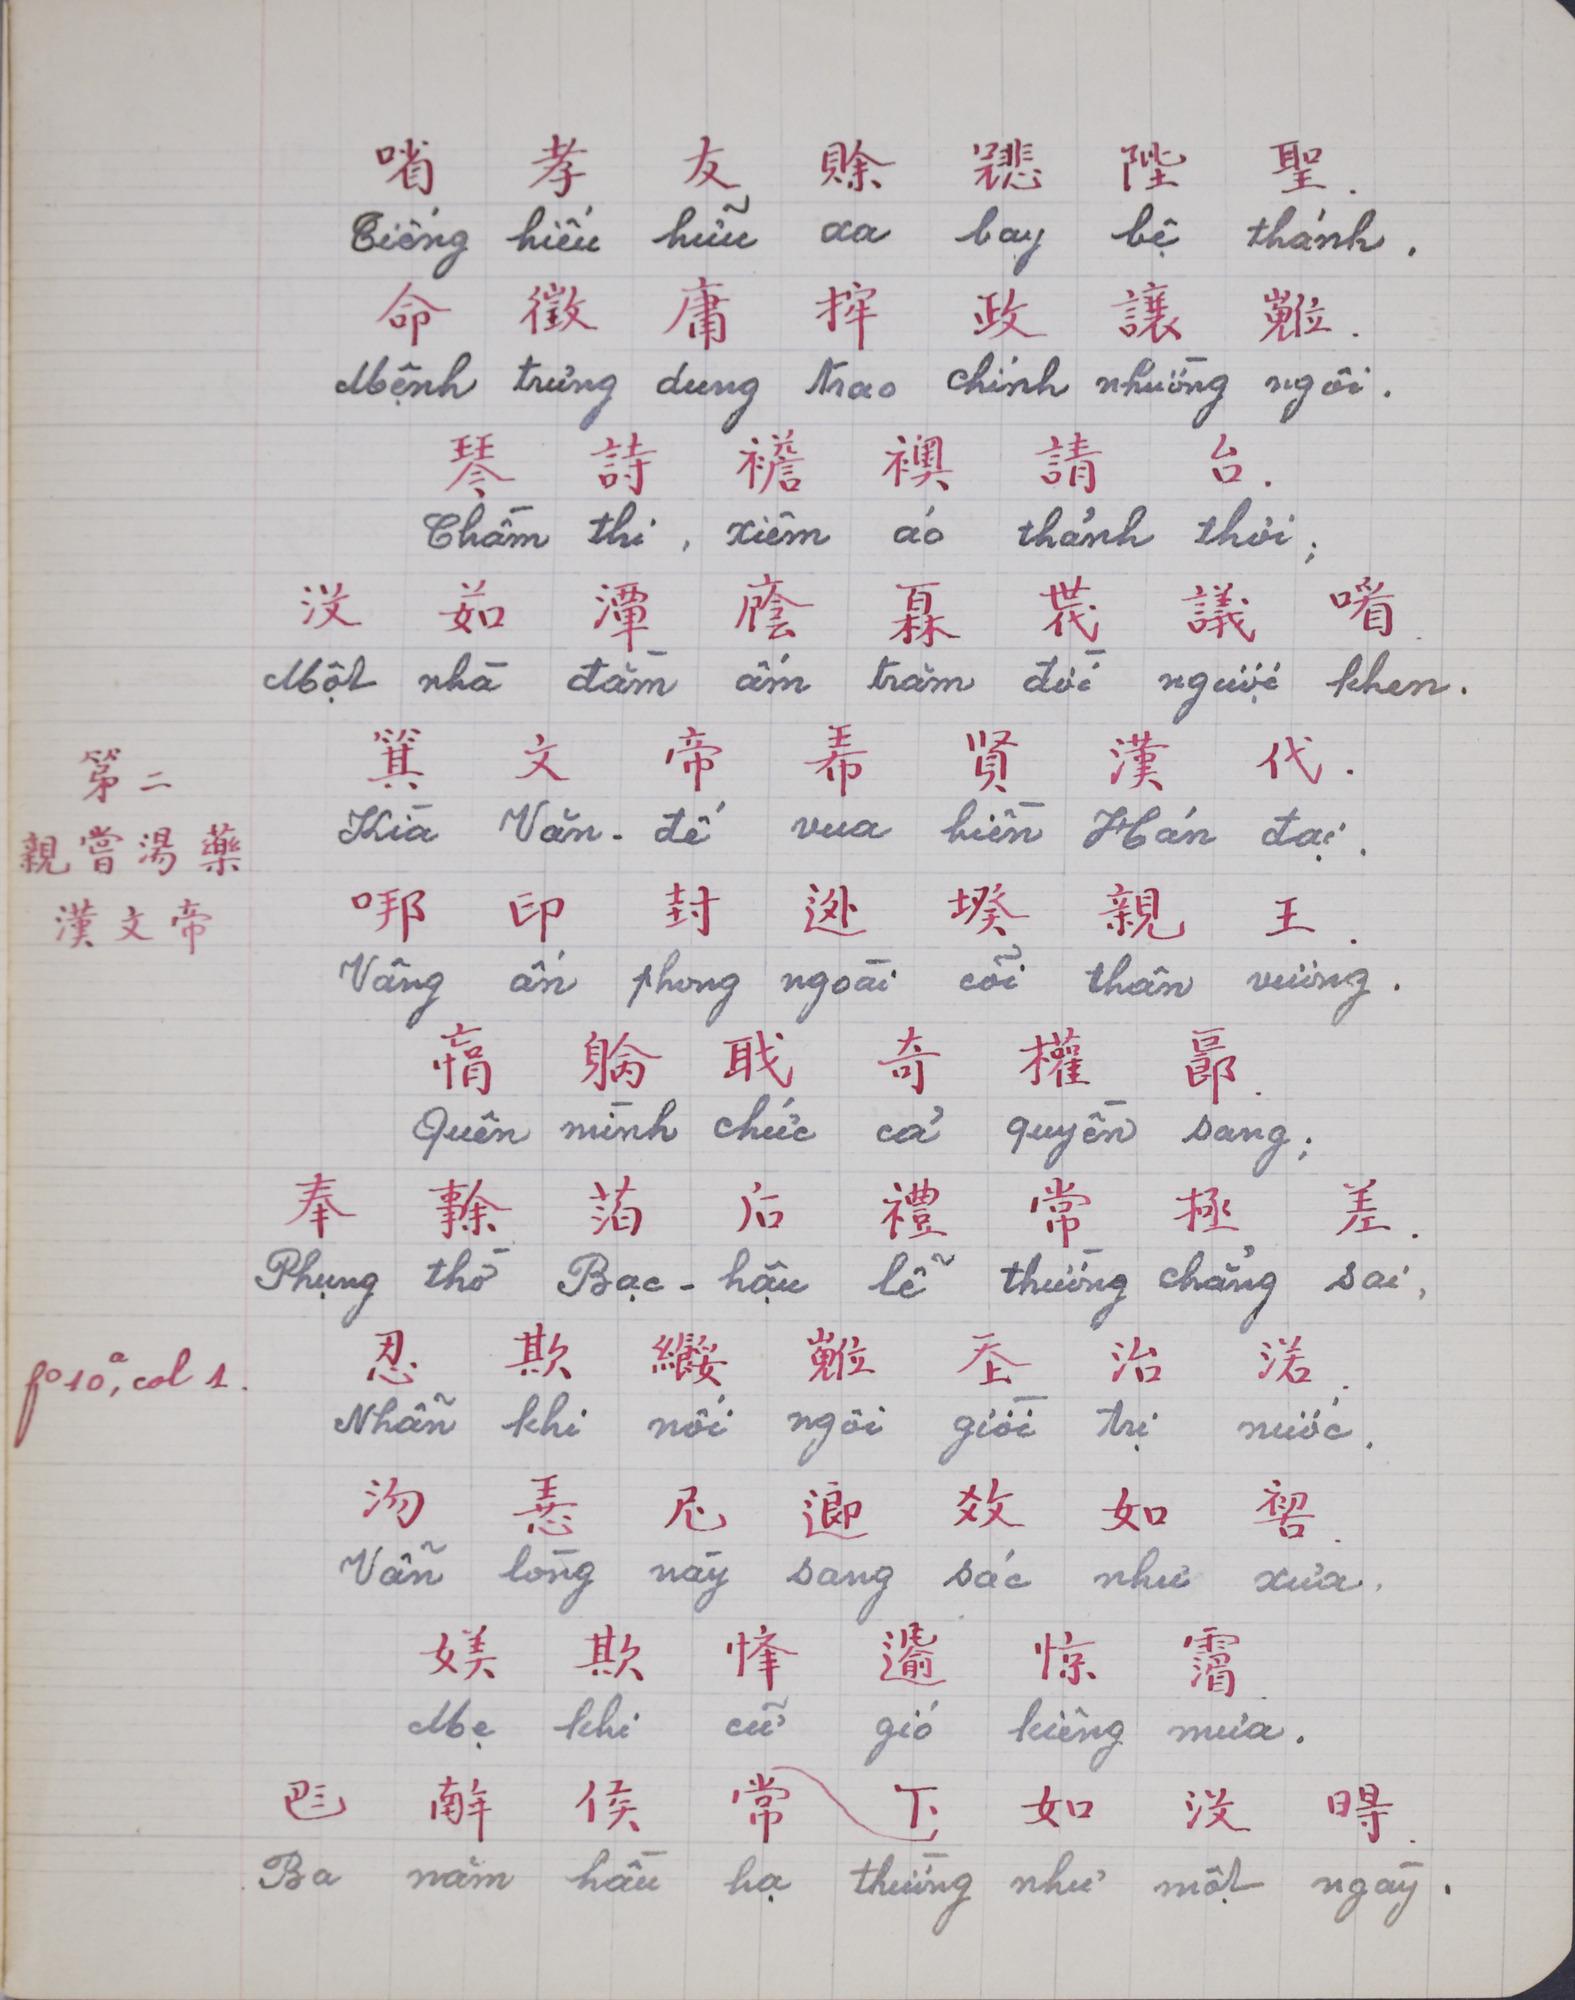 哨 孝 友 賒 𱝩 陛 聖.
Tiếng hiếu hữu xa bay bệ thánh.
命 徵 庸 㨋 政 讓 𡾵.
Mệnh trưng dung trao chính nhường ngôi.
琴 詩 襜 襖 請 台.
Chầm thi, xiêm áo thảnh thơi;
没 茹 潭 廕 𤾓 𠁀 議 㗂
Một nhà đầm ấm trăm đời người khen.
箕 文 帝 𢂜 賢 漢 代.
Kìa Văn-đế vua hiền Hán đại.
第二
親嘗湯藥
漢文帝
𠹚 印 封 外 揆 親 王.
Vâng ấn phong ngoài cõi thân vương.
𠅳 𨉓 職 奇 權 郎.
Quên mình chức cả quyền sang;
奉 蜍 薄 后 禮 常 極 差.
Phụng thờ Bạc-hậu lễ thường chẳng sai,
忍 欺 𦇒 𡾵 𡗶 治 渃.
Nhẫn khi nối ngôi giời trị nước.
fº 10ᵃ, col 1.
沕 𢚸 尼 𨖅 效 如 𠸗.
Vẫn lòng này sang sác như xưa.
媄 欺 㤝 𩙍 惊 𩅹.
Mẹ khi cữ gió kiêng mưa.
𠀧 𢆥 侯 常 下 如 没 𣈜.
Ba năm hầu hạ thường như một ngày.